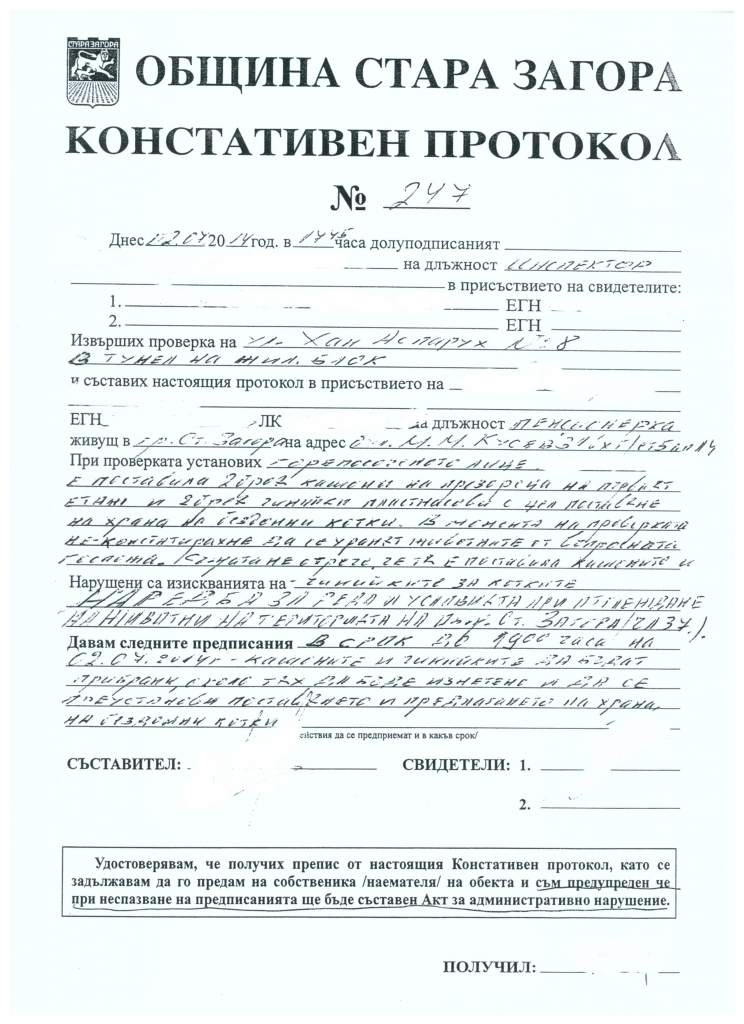 СТАРА ЗАГОРА
ОБЩИНА СТАРА ЗАГОРА
КОНСТАТИВЕН ПРОТОКОЛ
№ 247
Днес 02.07 2014 год. в 1745 часа долуподписаният
на длъжност ИНСПЕКТОР
в присъствието на свидетелите:
1. ЕГН
2. ЕГН
Извърших проверка на ул. Хан Аспарух № 8
В ТУНЕЛ НА ЖИЛ. БЛОК
и съставих настоящия протокол в присъствието на
ЕГН ЛК на длъжност ПЕНСИОНЕРКА
живущ в гр. Ст. Загора на адрес М. М. Кусев
При проверката установих горепосоченото лице
е поставила 2 броя кашони на прозореца на първият
етаж и 2 броя чинийки пластмасови с цел поставяне
на храна на бездомни котки. В момента на проверката
не констатирахме да се хранят животните от въпросната
госпожа. че тя е поставила кашоните и
Нарушени са изискванията на чинийките за котките
НАРЕДБА ЗА РЕДА И УСЛОВИЯТА ПРИ ОТГЛЕЖДАНЕ
НА ЖИВОТНИ НА ТЕРИТОРИЯТА НА Общ. Ст. ЗАГОРА /ЧЛ 37/.
Давам следните предписания В срок до 1900 часа на
02.07.2014г - кашоните и чинийките ДА БЪДАТ
прибрани, около тях ДА БЪДЕ изметено и ДА СЕ
преустанови поставянето и предлагането на храна
на бездомни котки
ействия да се предприемат и в какъв срок/
СЪСТАВИТЕЛ: СВИДЕТЕЛИ: 1.
2.
Удостоверявам, че получих препис от настоящия Констативен протокол, като се
задължавам да го предам на собственика /наемателя/ на обекта и съм предупреден че
при неспазване на предписанията ще бъде съставен Акт за административно нарушение.
ПОЛУЧИЛ: